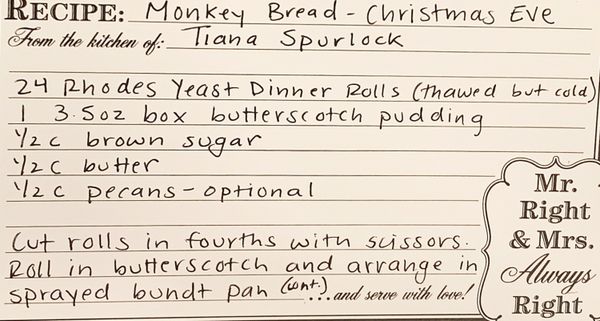 RECIPE: Monkey Bread - Christmas Eve
From the kitchen of: Tiana Spurlock
24 Rhodes Yeast Dinner Rolls (thawed but cold)
1 3.5oz box butterscotch pudding
1/2 c brown sugar
1/2 c butter
1/2 c pecans - optional
Cut rolls in fourths with scissors.
Roll in butterscotch and arrange in
sprayed bundt pan (cont.) ...and serve with love!
Mr.
Right
& Mrs.
Always
Right